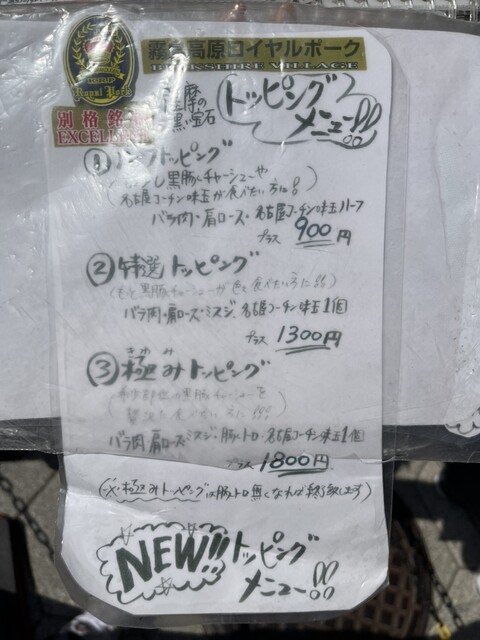 霧島高原ロイヤルポーク
BERKSHIRE VILLAGE
Royal Pork
別格銘
EXCELLEN
薩摩の
黒い宝石
トッピング
メニュー!!
① トッピング
黒豚チャーシューや
名古屋コーチン味玉が食べたい方に!
バラ肉・肩ロース・名古屋コーチン味玉ハーフ
プラス 900円
② 特選トッピング
(もっと黒豚チャーシューが色々食べたい方に!!)
バラ肉・肩ロース・ミスジ・名古屋コーチン味玉1個
プラス 1300円
③ 極みトッピング
きわ
希少部位の黒豚チャーシューを
贅沢に食べたい方に!!!
バラ肉・肩ロース・ミスジ・豚トロ・名古屋コーチン味玉1個
プラス 1800円
極みトッピングは豚トロ無くなれば終了致します)
NEW!! トッピング
メニュー!!